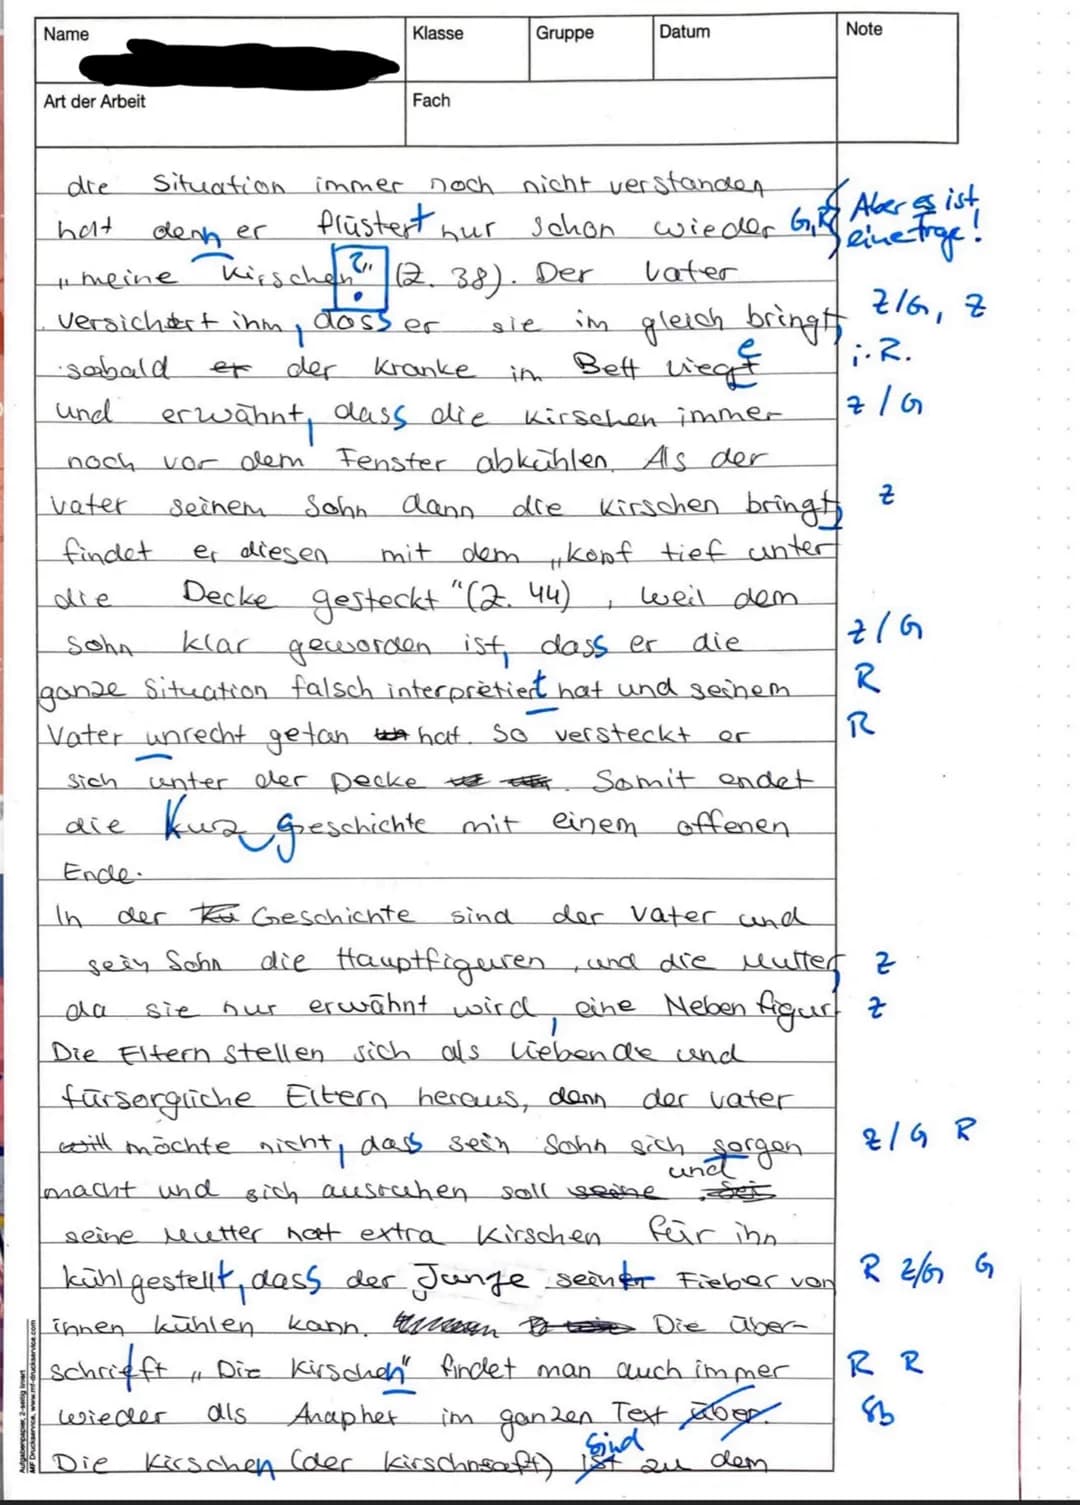 Name
Klasse
Gruppe
Datum
Note
Art der Arbeit
Fach
die Situation immer noch nicht verstanden
hat denn er flüstert nur schon wieder G,R Aber es ist
eine Frage!
„meine Kirschen?" (Z. 38). Der Vater
versichert ihm, dass er sie im gleich bringt, Z/G, Z
sobald er der Kranke im Bett liegt i.R.
und erwähnt, dass die Kirschen immer Z/G
noch vor dem Fenster abkühlen. Als der
Vater seinem Sohn dann die Kirschen bringt, Z
findet er diesen mit dem „Kopf tief unter
die Decke gesteckt" (Z. 44), weil dem
Sohn klar geworden ist, dass er die Z/G
ganze Situation falsch interpretiert hat und seinem R
Vater unrecht getan hat. So versteckt er R
sich unter der Decke. Somit endet
die Kurzgeschichte mit einem offenen
Ende.
In der Geschichte sind der Vater und
sein Sohn die Hauptfiguren, und die Mutter, Z
da sie nur erwähnt wird, eine Nebenfigur. Z
Die Eltern stellen sich als liebende und
fürsorgliche Eltern heraus, denn der Vater
will möchte nicht, dass sein Sohn sich sorgen Z/G R
macht und sich ausruhen soll seine und
seine Mutter hat extra Kirschen für ihn
kühlgestellt, dass der Junge sein Fieber von R Z/G G
innen kühlen kann. Die Über-
schrift „Die Kirschen" findet man auch immer R R
wieder als Anapher im ganzen Text über. Sb
Die Kirschen (der Kirschsaft) ist sind zu dem
Aufgabenpapier, 2-seitig liniert
MF Druckservice, www.mf-druckservice.com